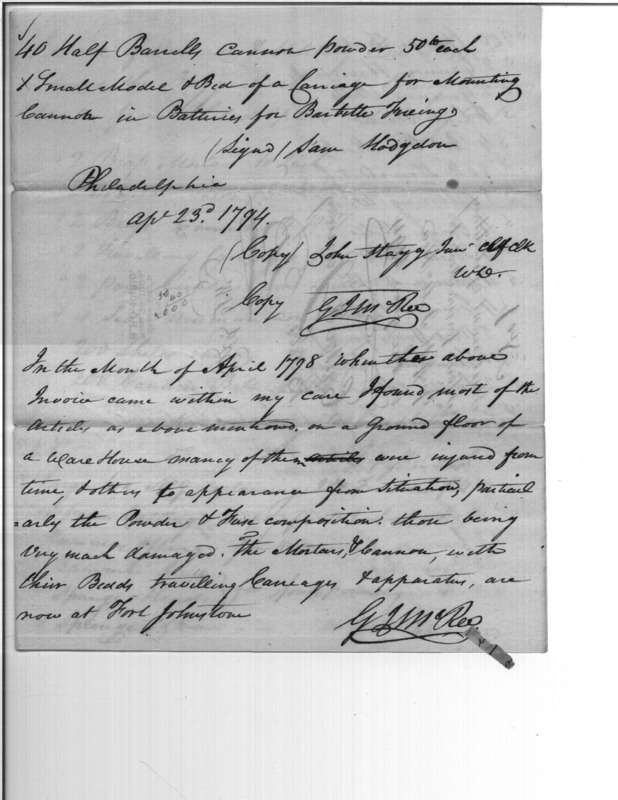 40 Half Barrells Cannon powder 50lb each
1 Small Model & Bed of a Carriage for Mounting
Cannon in Batteries for Barbette Fireing
(Signd) Sam Hodgdon
Philadelphia
Apl 23d 1794.
(Copy) John Stagg Junr Chf Clk
WD.
Copy G J McRee
50
40
2000
In the Month of April 1798 when the above
Invoice came within my care I found most of the
Articles as above mentiond. on a Ground floor of
a Ware House maney of them articles were injured from
time, & others to appearance from Situation, particul
-arly the Powder & Fuse composition. those being
very much damaged. The Mortars, & Cannon, with
thier Bedds travelling Carreages & apparatus, are
now at Fort Johnstone
G J McRee